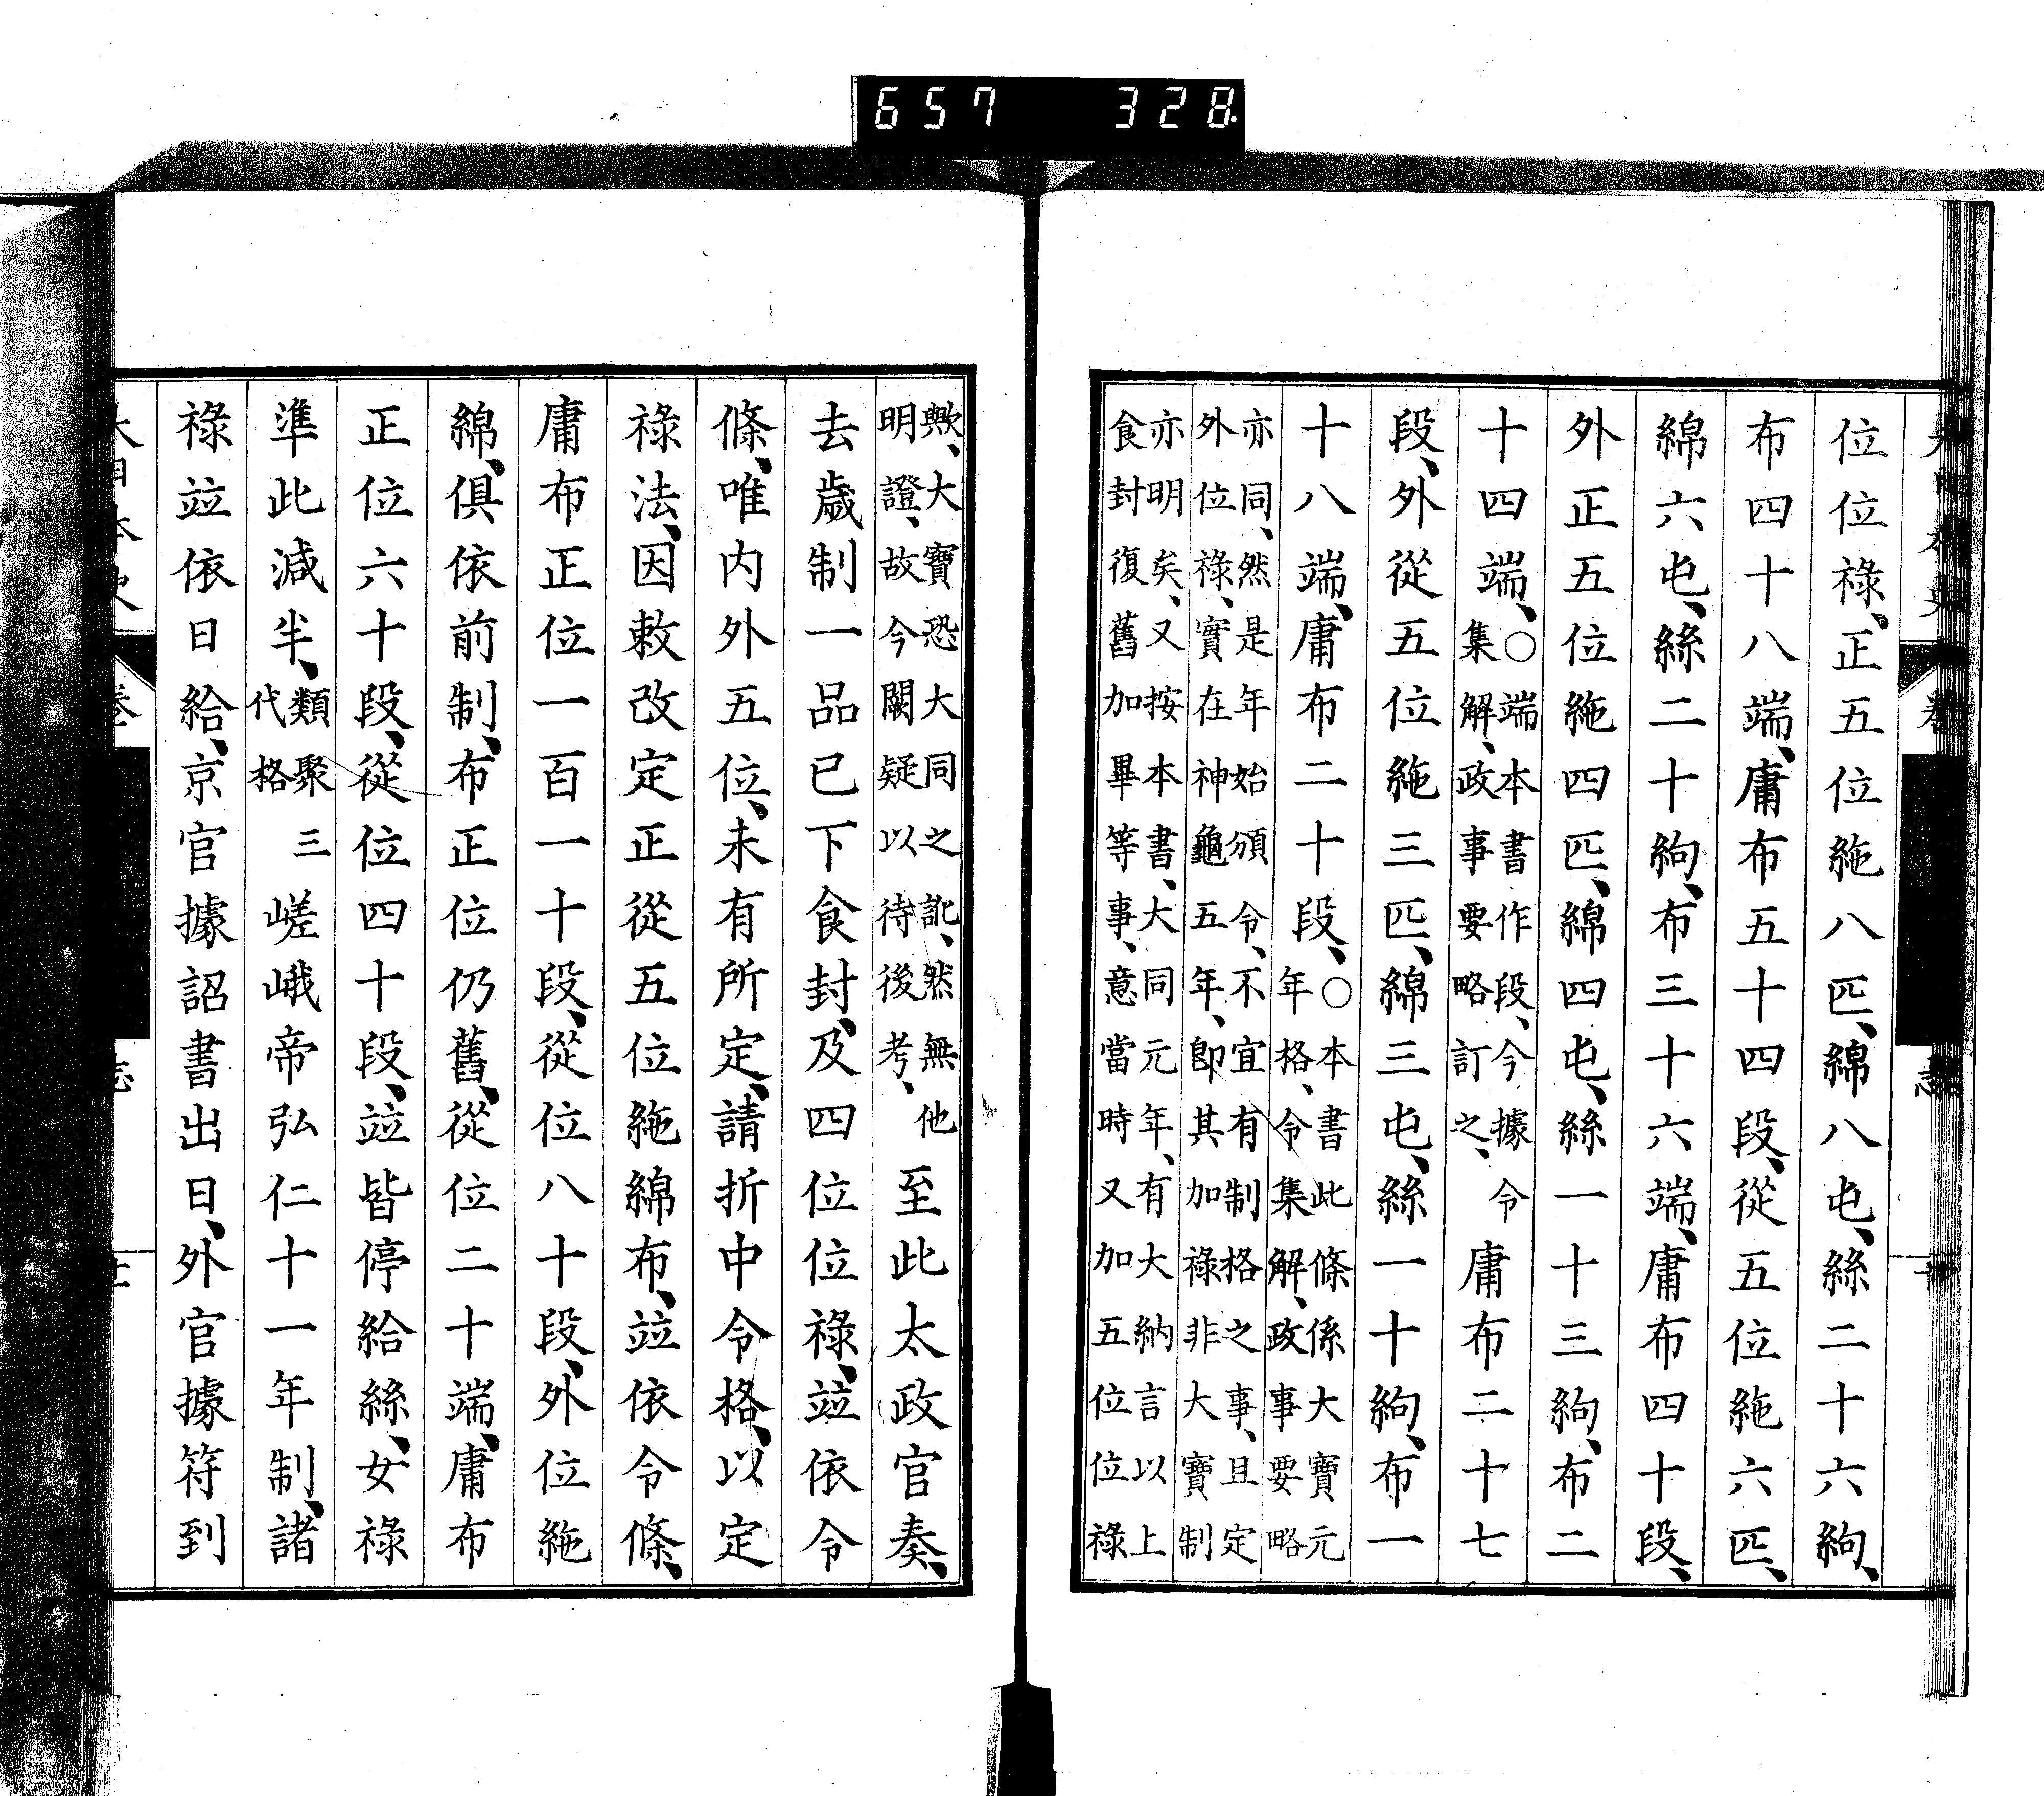 位位祿、正五位絁八匹、綿八屯、絲二十六絇、
布四十八端、庸布五十四段、從五位絁六匹、
綿六屯、絲二十絇、布三十六端、庸布四十段、
外正五位絁四匹、綿四屯、絲一十三絇、布二
十四端、○端本書作段、今據令集解、政事要略訂之、庸布二十七
段、外從五位絁三匹、綿三屯、絲一十絇、布一
十八端、庸布二十段、○本書此條係大寶元年格、令集解、政事要略
亦同、然是年始頒令、不宜有制格之事、且定
外位祿、實在神龜五年、卽其加祿非大寶制
亦明矣、又按本書、大同元年、有大納言以上
食封復舊加畢等事、意當時又加五位位祿
歟、大寶恐大同之訛、然無他明證、故今闕疑以待後考、至此太政官奏、
去歲制一品已下食封、及四位位祿、竝依令
條、唯内外五位、未有所定、請折中令格、以定
祿法、因敕改定正從五位絁綿布、竝依令條、
庸布正位一百一十段、從位八十段、外位絁
綿、俱依前制、布正位仍舊、從位二十端、庸布
正位六十段、從位四十段、竝皆停給絲、女祿
準此減半、類聚三代格嵯峨帝弘仁十一年制、諸
祿竝依日給、京官據詔書出日、外官據符到
657 328